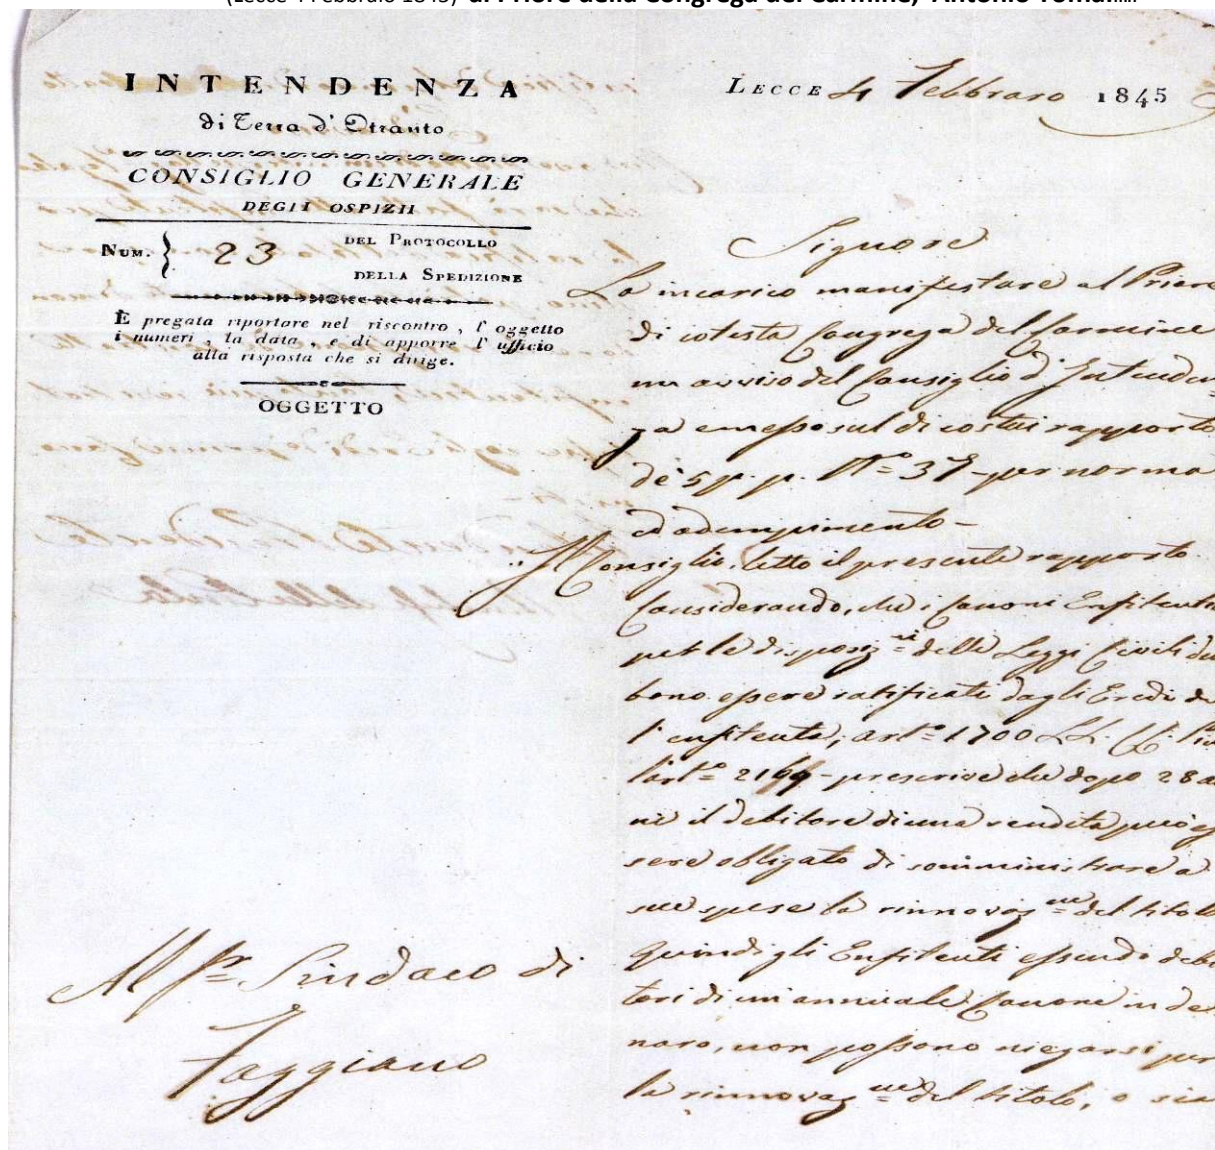 (Lecce 4 Febbraio 1845) al Priore della Congrega del Carmine, Antonio Toma
INTENDENZA
di Terra d'Otranto
CONSIGLIO GENERALE
DEGLI OSPIZII
NUM. } 23 DEL PROTOCOLLO
DELLA SPEDIZIONE
È pregata riportare nel riscontro, l'oggetto
i numeri, la data, e di apporre l'ufficio
alla risposta che si dirige.
OGGETTO
Al Sr. Sindaco di
Faggiano
LECCE 4 Febbraro 1845
Signore
La incarico manifestare al Priore
di cotesta Congrega del Carmine
un avviso del Consiglio d'Intenden
za emesso sul di costui rapporto
de' 5 p. p. N.° 37 - per norma
ed adempimento -
Il Consiglio, letto il presente rapporto
Considerando, che i Canoni Enfiteuti
per le disposiz.ni delle Leggi Civili deb
bono essere ratificati dagli Eredi del
l'enfiteuta, art.° 1700 LL. CC.
l'art.° 2169 - prescrive che dopo 28 an
ni il debitore di una rendita può es
sere obligato di somministrare a
sue spese la rinnovaz.ne del titolo
Quindi gli Enfiteuti essendo debi
tori di un annuale Canone in de
naro, non possono niegarsi per
la rinnovaz.ne del titolo, o sia